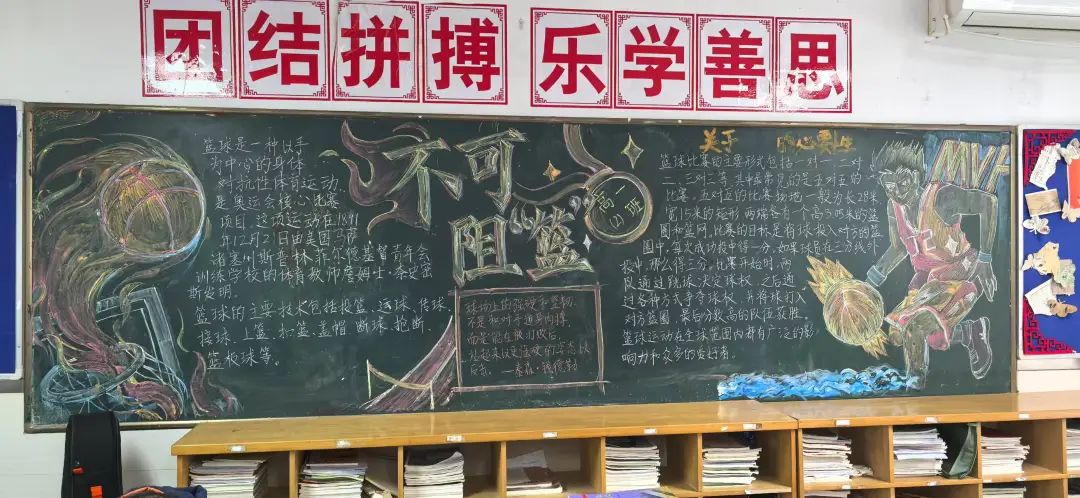 团结拼搏 乐学善思
篮球是一种以手
为中心的身体
对抗性体育运动,
是奥运会核心比赛
项目。这项运动在1891
年12月21日由美国马萨
诸塞州斯普林菲尔德基督青年会
训练学校的体育教师詹姆士·奈史密
斯发明。
篮球的主要技术包括投篮、运球、传球、
接球、上篮、扣篮、盖帽、断球、抢断、
篮板球等。
不可
阻“篮”
高一
(2)班
球场上的强硬和坚韧,
不是
而是能在被
反击。
关于
篮球比赛的主要形式包括一对一、二对
二、三对三等,其中最常见的是五对五的
比赛。五对五的比赛场地一般为长28米
宽15米的矩形,两端各有一个高3.05米的篮
圈和篮网。比赛的目标是将球投入对方的篮
圈中,每次成功投中得一分,如果球员在三分线外
投中,那么得三分。比赛开始时,两
队通过跳球决定球权,之后通
过各种方式争夺球权,并将球打入
对方篮圈,最后分数高的队伍获胜。
篮球运动在全球范围内都有广泛的影
响力和众多的爱好者。
MVP